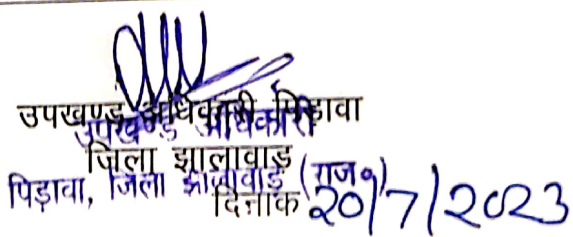 उपखण्ड अधिकारी पिड़ावा
उपखण्ड अधिकारी
जिला झालावाड़
पिड़ावा, जिला झालावाड़ (राज०)
दिनांक 20/7/2023